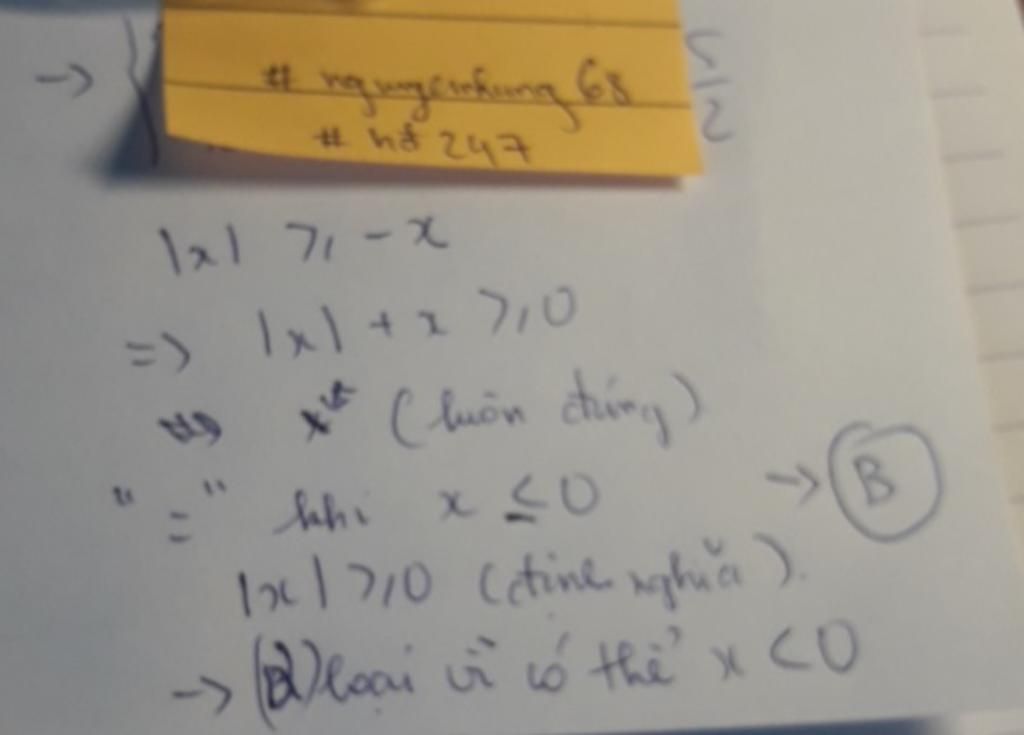 # nguyenhung 68
# hđ 247
→ { 5/2
|x| ≥ -x
=> |x| + x ≥ 0
(luôn đúng)
"=" khi x ≤ 0 → B
|x| ≥ 0 (định nghĩa).
→ loại vì có thể x < 0